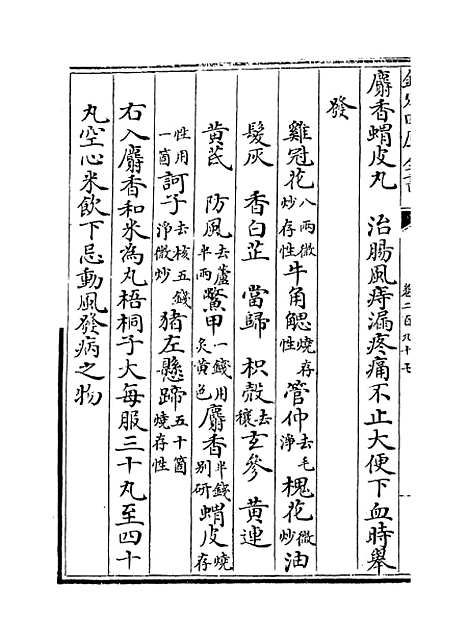 麝香蝟皮丸　治腸風痔漏疼痛不止大便下血時舉
發
雞冠花八兩微炒存性牛角䚡燒存性管仲去毛淨槐花微炒油
髮灰　香白芷　當歸　枳殼去穰玄參　黄連
黄芪　防風去蘆半兩鱉甲一錢用炙黄色麝香半錢别研蝟皮燒存
性用一箇訶子去核五錢淨微炒猪左懸蹄五十箇燒存性
右入麝香和米為丸梧桐子大每服三十丸至四十
丸空心米飲下忌動風發病之物
卷二百九十七